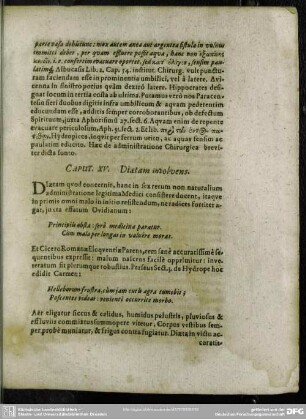 parte vasa debitum: mox autem aurea aut argentea fistula in vulnus
immittidebet, per quam effluere possit aqua, hanc non
i.e. confertim evacuare oportet, sed sensim pau-
latimq;. Albucasis Lib. 2. Cap. 54. instituit. Chirurg. vult punctu-
ram faciendam esse in prominentia umbilici, vel à latere. Avi-
cenna in sinistro potius quàm dextro latere. Hippocrates desi-
gnat locum in tertia costa ab ultima. Paræus verò non Paracen-
tesin fieri duobus digitis infra umbilicum & aquam pedetentim
educendam esse, additis semper corroborantibus, ob debitum,
justa Aphorismū 27. sect. 6. Aquam enim de repente
evacuare periculosum. Aph. 51. sect. 2. & Lib.
Hydropica, inquit per ferrum uniri, ac aquam
paulatim educito. Hæc de administratione Chirurgica brevi-
ter dicta sunto.
CAPUT. XV. Diætam involvens.
Diætam quod concernit, hanc in sex rerum non naturalium
administratione legitima Medici consistere docent, itaque
in primis omni malo in initio resistendum, ne radices fortiter a-
gat, juxta effatum Ovidianum:
Principiis obsta: serò medicina paratur.
Cùm mala per longas in valuêre moras.
Et Cicero Romanæ Eloquentiæ Parens, rem sanè accuratissimè se-
quentibus expressit: malum nascens facilè opprimitur: inve-
teratum fit plerumque robustius. Perseus Sect. 3. de Hydrope hoc
edidit Carmen:
Helleborum frustra, cùm jam cutis ægra tumebit;
Poscentes videas: venienti occurrite morbo.
Aër eligatur siccus & calidus, humidus palustris, pluviosus &
effluviis commitus summopere vitetur, Corpus vestibus sem-
per probè muniatur, & frigus contra fugiatur. Diæta in victu ac-
curatis-